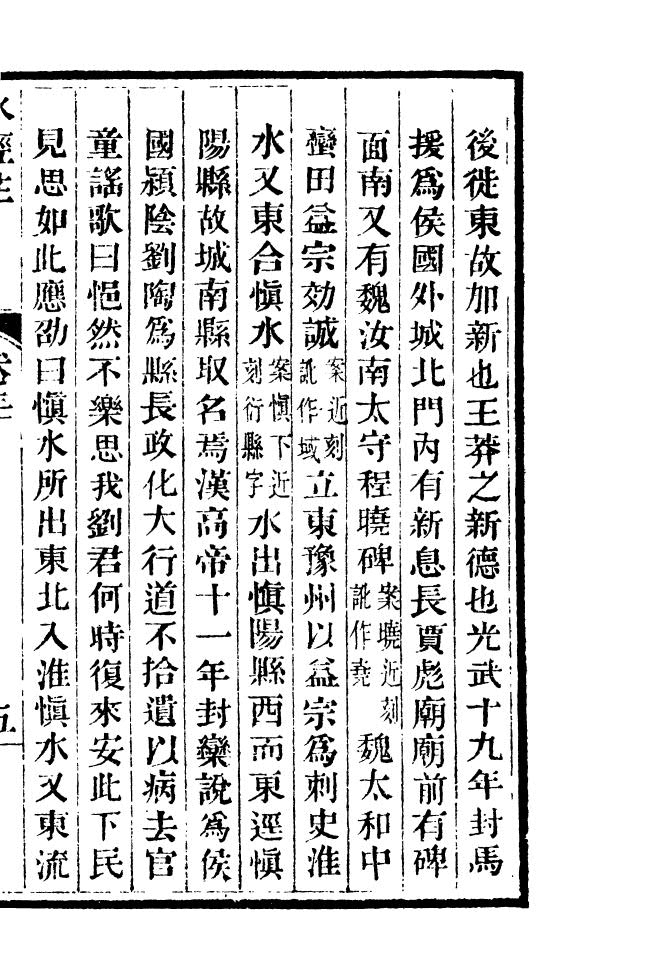 後徙東故加新也王莽之新德也光武十九年封馬
援爲侯國外城北門內有新息長賈彪廟廟前有碑
面南又有魏汝南太守程曉碑案曉近刻訛作堯魏太和中
蠻田益宗効誠案近刻訛作域立東豫州以益宗爲刺史淮
水又東合愼水案愼下近刻衍縣字水出愼陽縣西而東逕愼
陽縣故城南縣取名焉漢高帝十一年封欒說爲侯
國潁陰劉陶爲縣長政化大行道不拾遺以病去官
童謠歌曰悒然不樂思我劉君何時復來安此下民
見思如此應劭曰愼水所出東北入淮愼水又東流
水經注
卷三
五